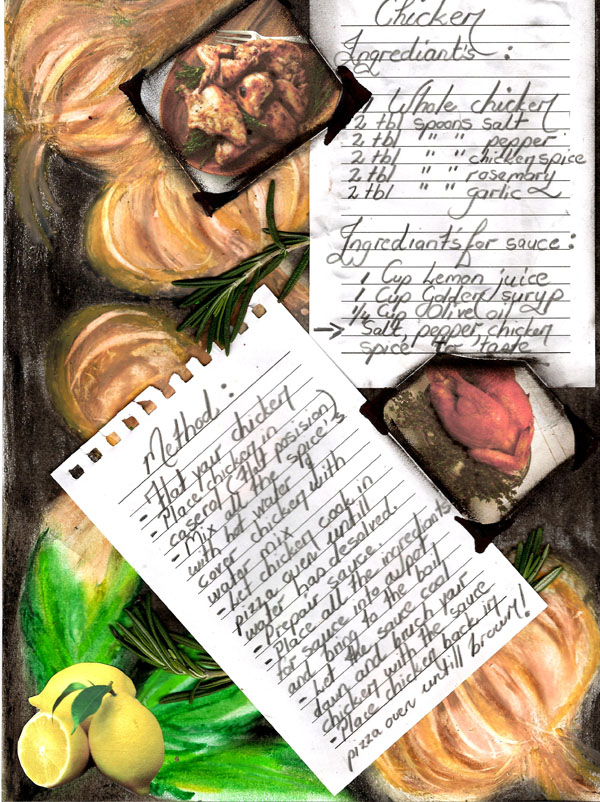 Chicken
Ingrediant's :
1 Whole chicken
2 tbl spoons salt
2 tbl " " pepper
2 tbl " " chicken spice
2 tbl " " rosemary
2 tbl " " garlic
Ingrediant's for sauce :
1 Cup Lemon juice
1 Cup Golden suryp
1/4 Cup Olive oil
→ Salt, pepper, chicken
spice for taste
Method :
- Flat your chicken
- Place chicken in
caserol (Flat posision)
- Mix all the "spice's
with hot water &
cover chicken with
water mix
- Let chicken cook in
pizza oven untill
water has desolved.
- Prepair sauce.
- Place all the ingrediants
for sauce into a pot
and bring to the boil
- Let the sauce cool
down and brush your
chicken with the sauce
- Place chicken back in
pizza oven untill brown!